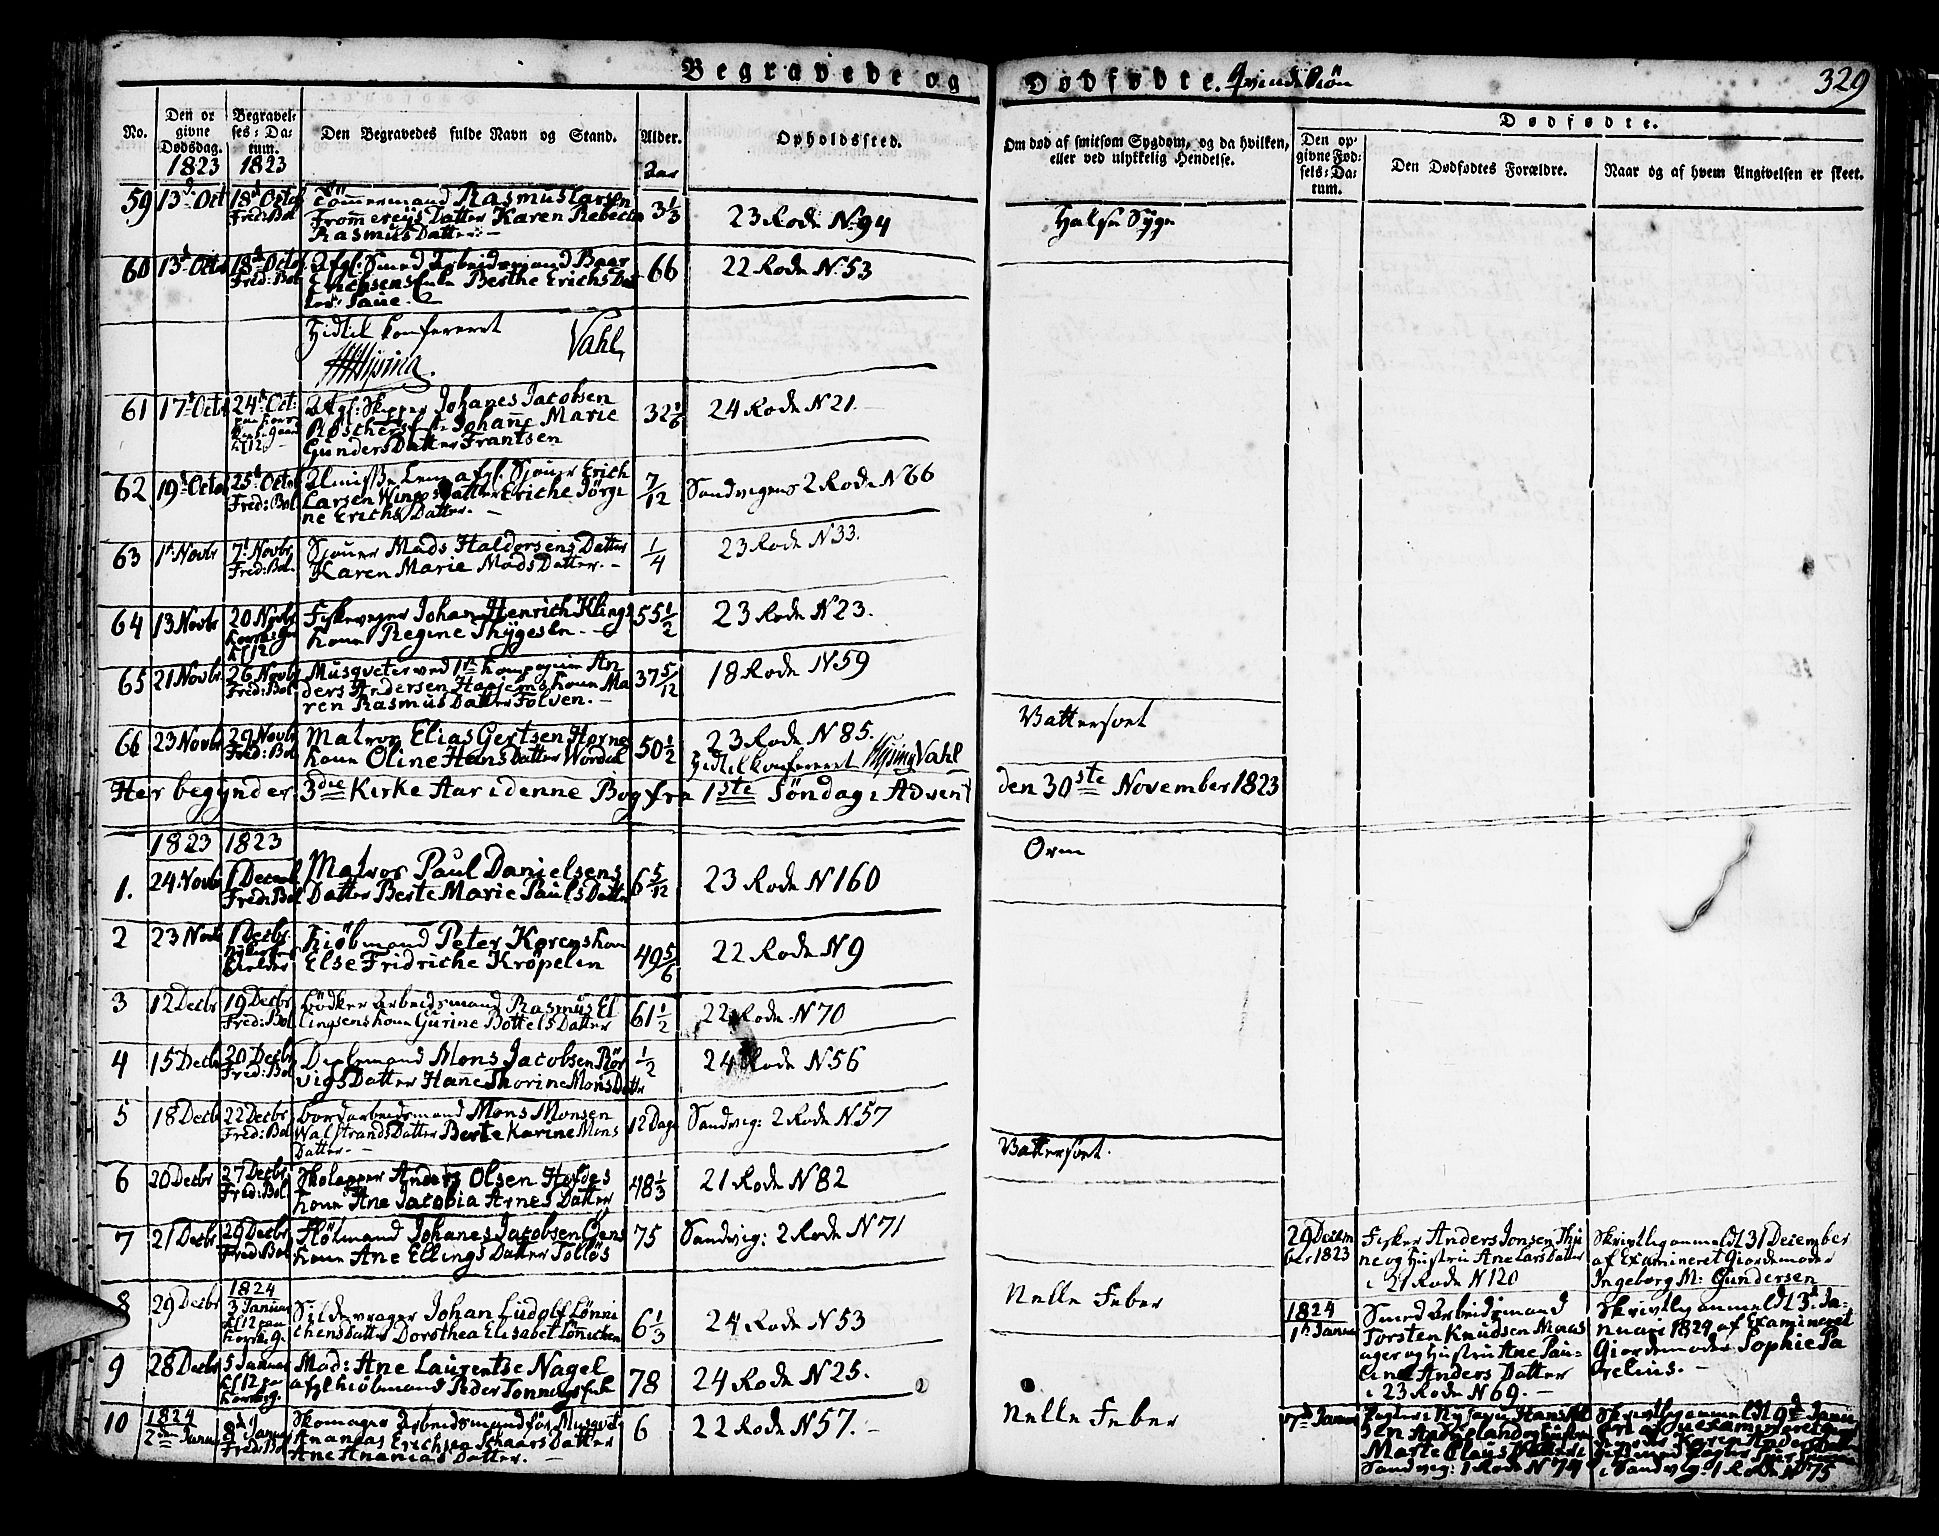 Begravede og Dødfødte. Qvindkiøn
329
No.
Den opgivne Dødsdag.
1823
Begravelses-Datum.
1823
Den Begravedes fulde Navn og Stand.
Alder.
Aar
Opholdssted.
Om død af smitsom Sygdom, og da hvilken,
eller ved ulykkelig Hendelse.
Dødfødte.
Den opgivne Fødsels-Datum.
Den Dødfødtes Forældre.
Naar og af hvem Angivelsen er skeet.
59 13d Oct 18d Octob Fred: Bol
Tömmermand Rasmus Larsen
Datter Karen Rebecca
Rasmus Datter. –
3 1/3
23 Rode No. 94
Halse Syge
60 13d Octob 18d Octob Fred: Bol
Afgl: Smed Arbeidsmand Baar
Erichsens Enke Berthe Erichs Dat
ter
66
22 Rode N. 53
Hidtil konfereret Vahl
61 17d Octb 24d Oct
Kl 12
Afgl: Skipper Johanes Jacobsen
Johane Marie
Gunders Datter Frantsen
32 1/6
24 Rode N 21.
62 19d Octob 25d Octob Fred: Bol
afgl. Sjouer Erich
Larsen Datter Eriche Jörgi
ne Erichs Datter. –
7/12
Sandvigens 2 Rode N 66
63 1st Novbr 7d Novbr Fred: Bol.
Sjouer Mads Haldorsens Datter
Karen Marie Mads Datter. –
1/4
23 Rode N 33.
64 13 Novbr 20 Novbr
Kl 12
Johan Henrich Klings
Kone Regine Thygesen. –
55 1/2
23 Rode N 23.
65 21 Novbr 26 Novbr Fred: Bol
Musqveter ved 1ste Kompagnie An
ders Andersen Kone Ma
ren Rasmus Datter Folven. –
37 5/12
18 Rode N 59
66 23 Novbr 29 Novbr Fred: Bol
Matros Elias Gertsen Horne
Kone Oline Hans Datter
50 1/2
23 Rode N 85.
Hidtil konfereret Vahl
Vattersoet
Her begynder 3die Kirke Aar i denne Bog fra 1ste Söndag i Advent den 30ste November 1823
1823 1823
1. 24 Novbr 1 Decemb Fred: Bol
Matros Paul Danielsens
Datter Berte Marie Pauls Datter
6 5/12
23 Rode N 160
Orm
2 23 Novb 1 Decbr.
Kiöbmand Peter Korens Kone
Else Fridriche Kröpelin
49 5/6
22 Rode N 9
3 12 Decbr 19 Decbr Fred: Bol
Bödker Arbeidsmand Rasmus El
lingsens Kone Gurine Bottels Datter
61 1/2
22 Rode N 70
4 15 Decbr 20 Decbr Fred: Bol
Mons Jacobsen Rör
vigs Datter Hane Thorine Mons Datter
1/2
24 Rode N 56
5 18 Decbr 22 Decbr Fred: Bol
Bordarbeidsmand Mons Monsen
Walstrands Datter Berte Karine Mons
Datter. –
12 Dage
Sandvig: 2 Rode N. 57
6 20 Decbr 27 Decbr Fred: Bol
Skolapper Anders Olsen
Kone Ane Jacobia Arnes Datter
48 1/3
21 Rode N 82
Vattersoet.
7 21 Decbr 29 Decbr Fred: Bol
Johanes Jacobsen
Kone Ane Ellings Datter Tollös
75
Sandvig: 2 Rode N 71
29 Decem
ber 1823
Fisker Anders Jonsen Thu
ne og Hustru Ane Lars Datter
i 21 Rode N 120
Skriftlig anmeldt 31 December
af Examineret Giordemoder
Ingeborg M: Gundersen
8 29 Decbr 1824
3 Januar
Kl 12
Sildevrager Johan Ludolf Lönni
chens Datter Dorothea Elisabet Lönichen
6 1/3
24 Rode N 53
Nelle Feber
1824
1st Januar
Smed Arbeidsmand
Torsten Knudsen
og Hustru Ane Pau-
line Anders Datter
i 23 Rode N 69. –
Skriftlig anmeldt 3d Ja-
nuari 1824 af Examineret
Giordemoder Sophie Pa
relius. –
9 28 Decbr 5 Januar
Kl 12
Mad: Ane Laurentse Nagel
afgl kiöbmand Peder
78
24 Rode N 25.
10 1824
2den Januar 8d Januar Fred: Bol
Skomager Arbeidsmand
Ananias Erichsen Schaars Datter
Ane Ananias Datter. –
6
22 Rode N 57. –
Nelle Feber
7d Januar
Hans
Marte Claus Datter
Sandvig: 1 Rode N 74
Skriftlig anmeldt 9d Janu
ari af
i Sandvig: 1 Rode N 75